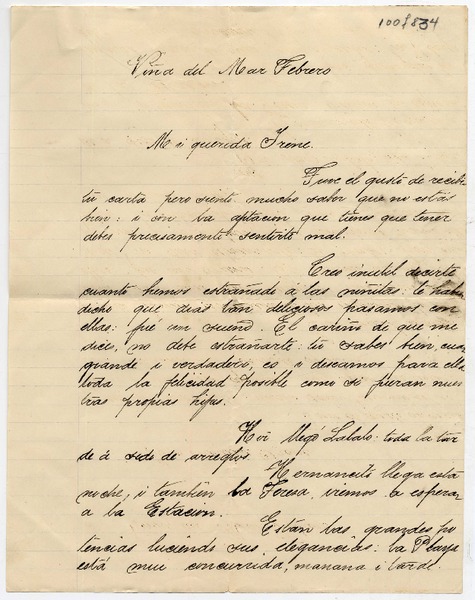 1001834
Viña del Mar Febrero
Mi querida Irene.
Tuve el gusto de recibir
tu carta pero siento mucho saber que no estás
bien: i con la que tienes que tener
debes precisamente sentirte mal.
Creo inutil decirte
cuanto hemos estrañado á las niñitas: te habrán
dicho que dias tan deliciosos pasamos con
ellas: fué un sueño. El cariño de que me
dices, no debe estrañarte: tú sabes bien cuan
grande i verdadero, es i deseamos para ellas
toda la felicidad posible como si fueran nues
tras propias hijas.
Hoi llegó Lalalo: toda la tar
de á sido de arreglos.
Hernancito llega esta
noche, i tambien la Teresa, iremos a esperar
a la Estacion.
Están las grandes po
tencias luciendo sus elegancias: la Playa
está mui concurrida, mañana i tarde.